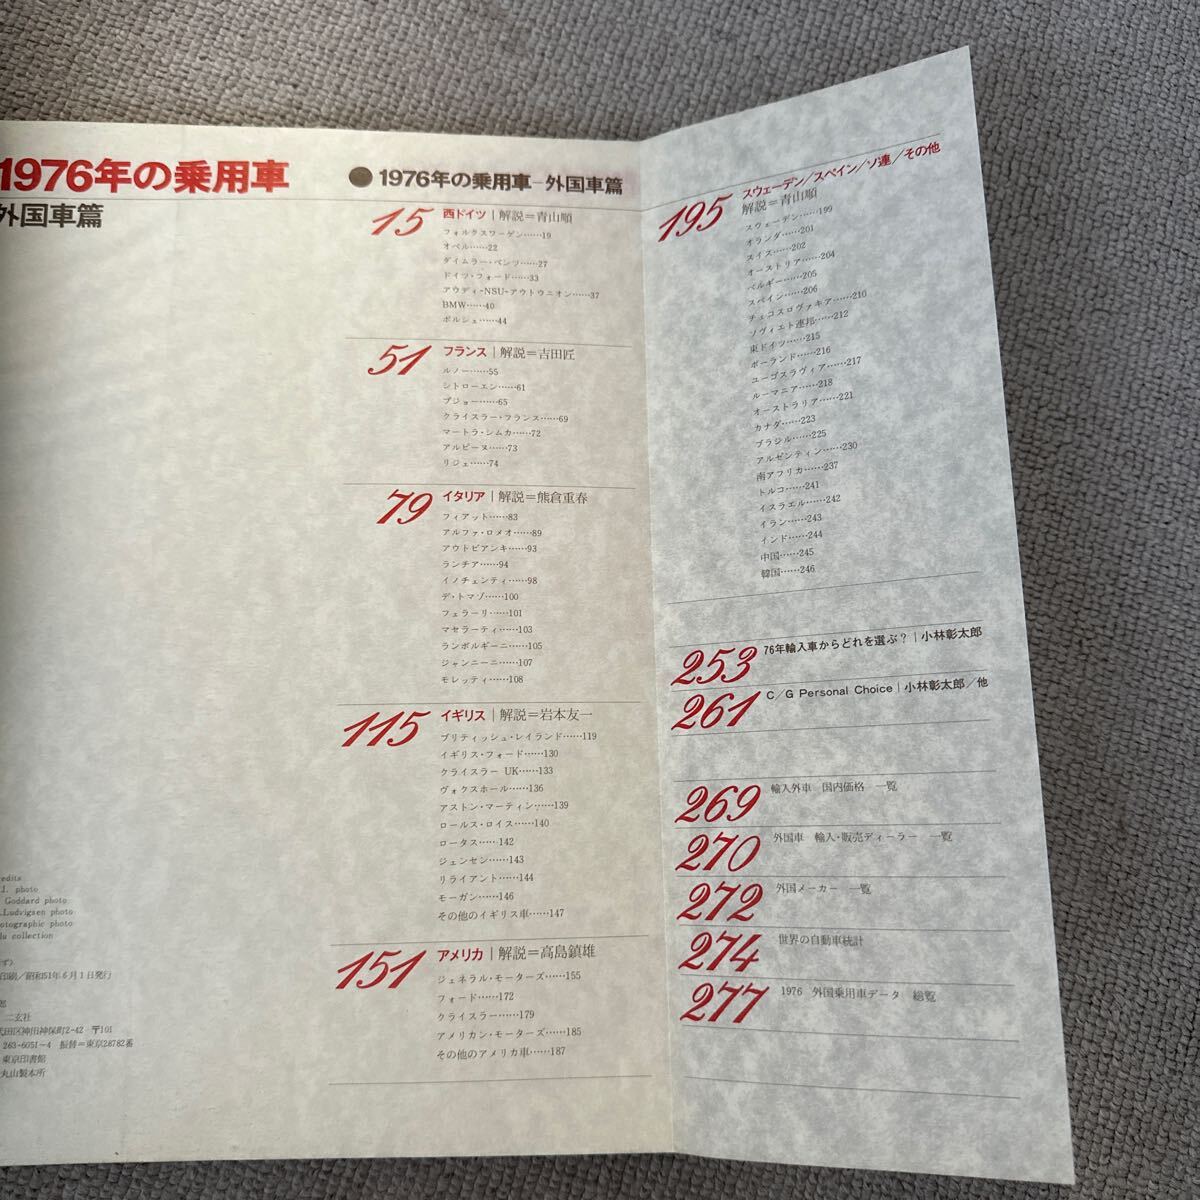 1976年の乗用車
外国車篇
edits
J. photo
Goddard photo
.Ludvigsen photo
otographic photo
lu collection
ず)
印刷／昭和51年6月1日発行
郎
二玄社
代田区神田神保町2-42 〒101
263-6051-4 振替＝東京28782番
東京印書館
丸山製本所
●1976年の乗用車－外国車篇
15 西ドイツ｜解説＝青山順
フォルクスワーゲン……19
オペル……22
ダイムラー・ベンツ……27
ドイツ・フォード……33
アウディ-NSU-アウトウニオン……37
BMW……40
ポルシェ……44
51 フランス｜解説＝吉田匠
ルノー……55
シトローエン……61
プジョー……65
クライスラー・フランス……69
マートラ・シムカ……72
アルピーヌ……73
リジェ……74
79 イタリア｜解説＝熊倉重春
フィアット……83
アルファ・ロメオ……89
アウトビアンキ……93
ランチア……94
イノチェンティ……98
デ・トマゾ……100
フェラーリ……101
マセラーティ……103
ランボルギーニ……105
ジャンニーニ……107
モレッティ……108
115 イギリス｜解説＝岩本友一
ブリティッシュ・レイランド……119
イギリス・フォード……130
クライスラー UK……133
ヴォクスホール……136
アストン・マーティン……139
ロールス・ロイス……140
ロータス……142
ジェンセン……143
リライアント……144
モーガン……146
その他のイギリス車……147
151 アメリカ｜解説＝高島鎮雄
ジェネラル・モーターズ……155
フォード……172
クライスラー……179
アメリカン・モーターズ……185
その他のアメリカ車……187
195 スウェーデン／スペイン／ソ連／その他
解説＝青山順
スウェーデン……199
オランダ……201
スイス……202
オーストリア……204
ベルギー……205
スペイン……206
チェコスロヴァキア……210
ソヴィエト連邦……212
東ドイツ……215
ポーランド……216
ユーゴスラヴィア……217
ルーマニア……218
オーストラリア……221
カナダ……223
ブラジル……225
アルゼンティン……230
南アフリカ……237
トルコ……241
イスラエル……242
イラン……243
インド……244
中国……245
韓国……246
253 76年輸入車からどれを選ぶ？｜小林彰太郎
261 C／G Personal Choice｜小林彰太郎／他
269 輸入外車 国内価格 一覧
270 外国車 輸入・販売ディーラー 一覧
272 外国メーカー 一覧
274 世界の自動車統計
277 1976 外国乗用車データ 総覧